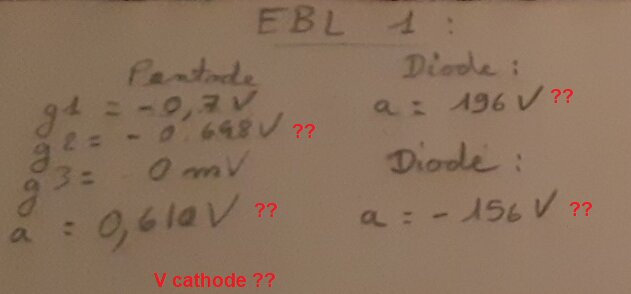 EBL 1 :
Pentode
g1 = - 0,7 V
g2 = - 0.698 V ??
g3 = 0 mV
a = 0,610 V ??
V cathode ??
Diode :
a = 196 V ??
Diode :
a = - 156 V ??